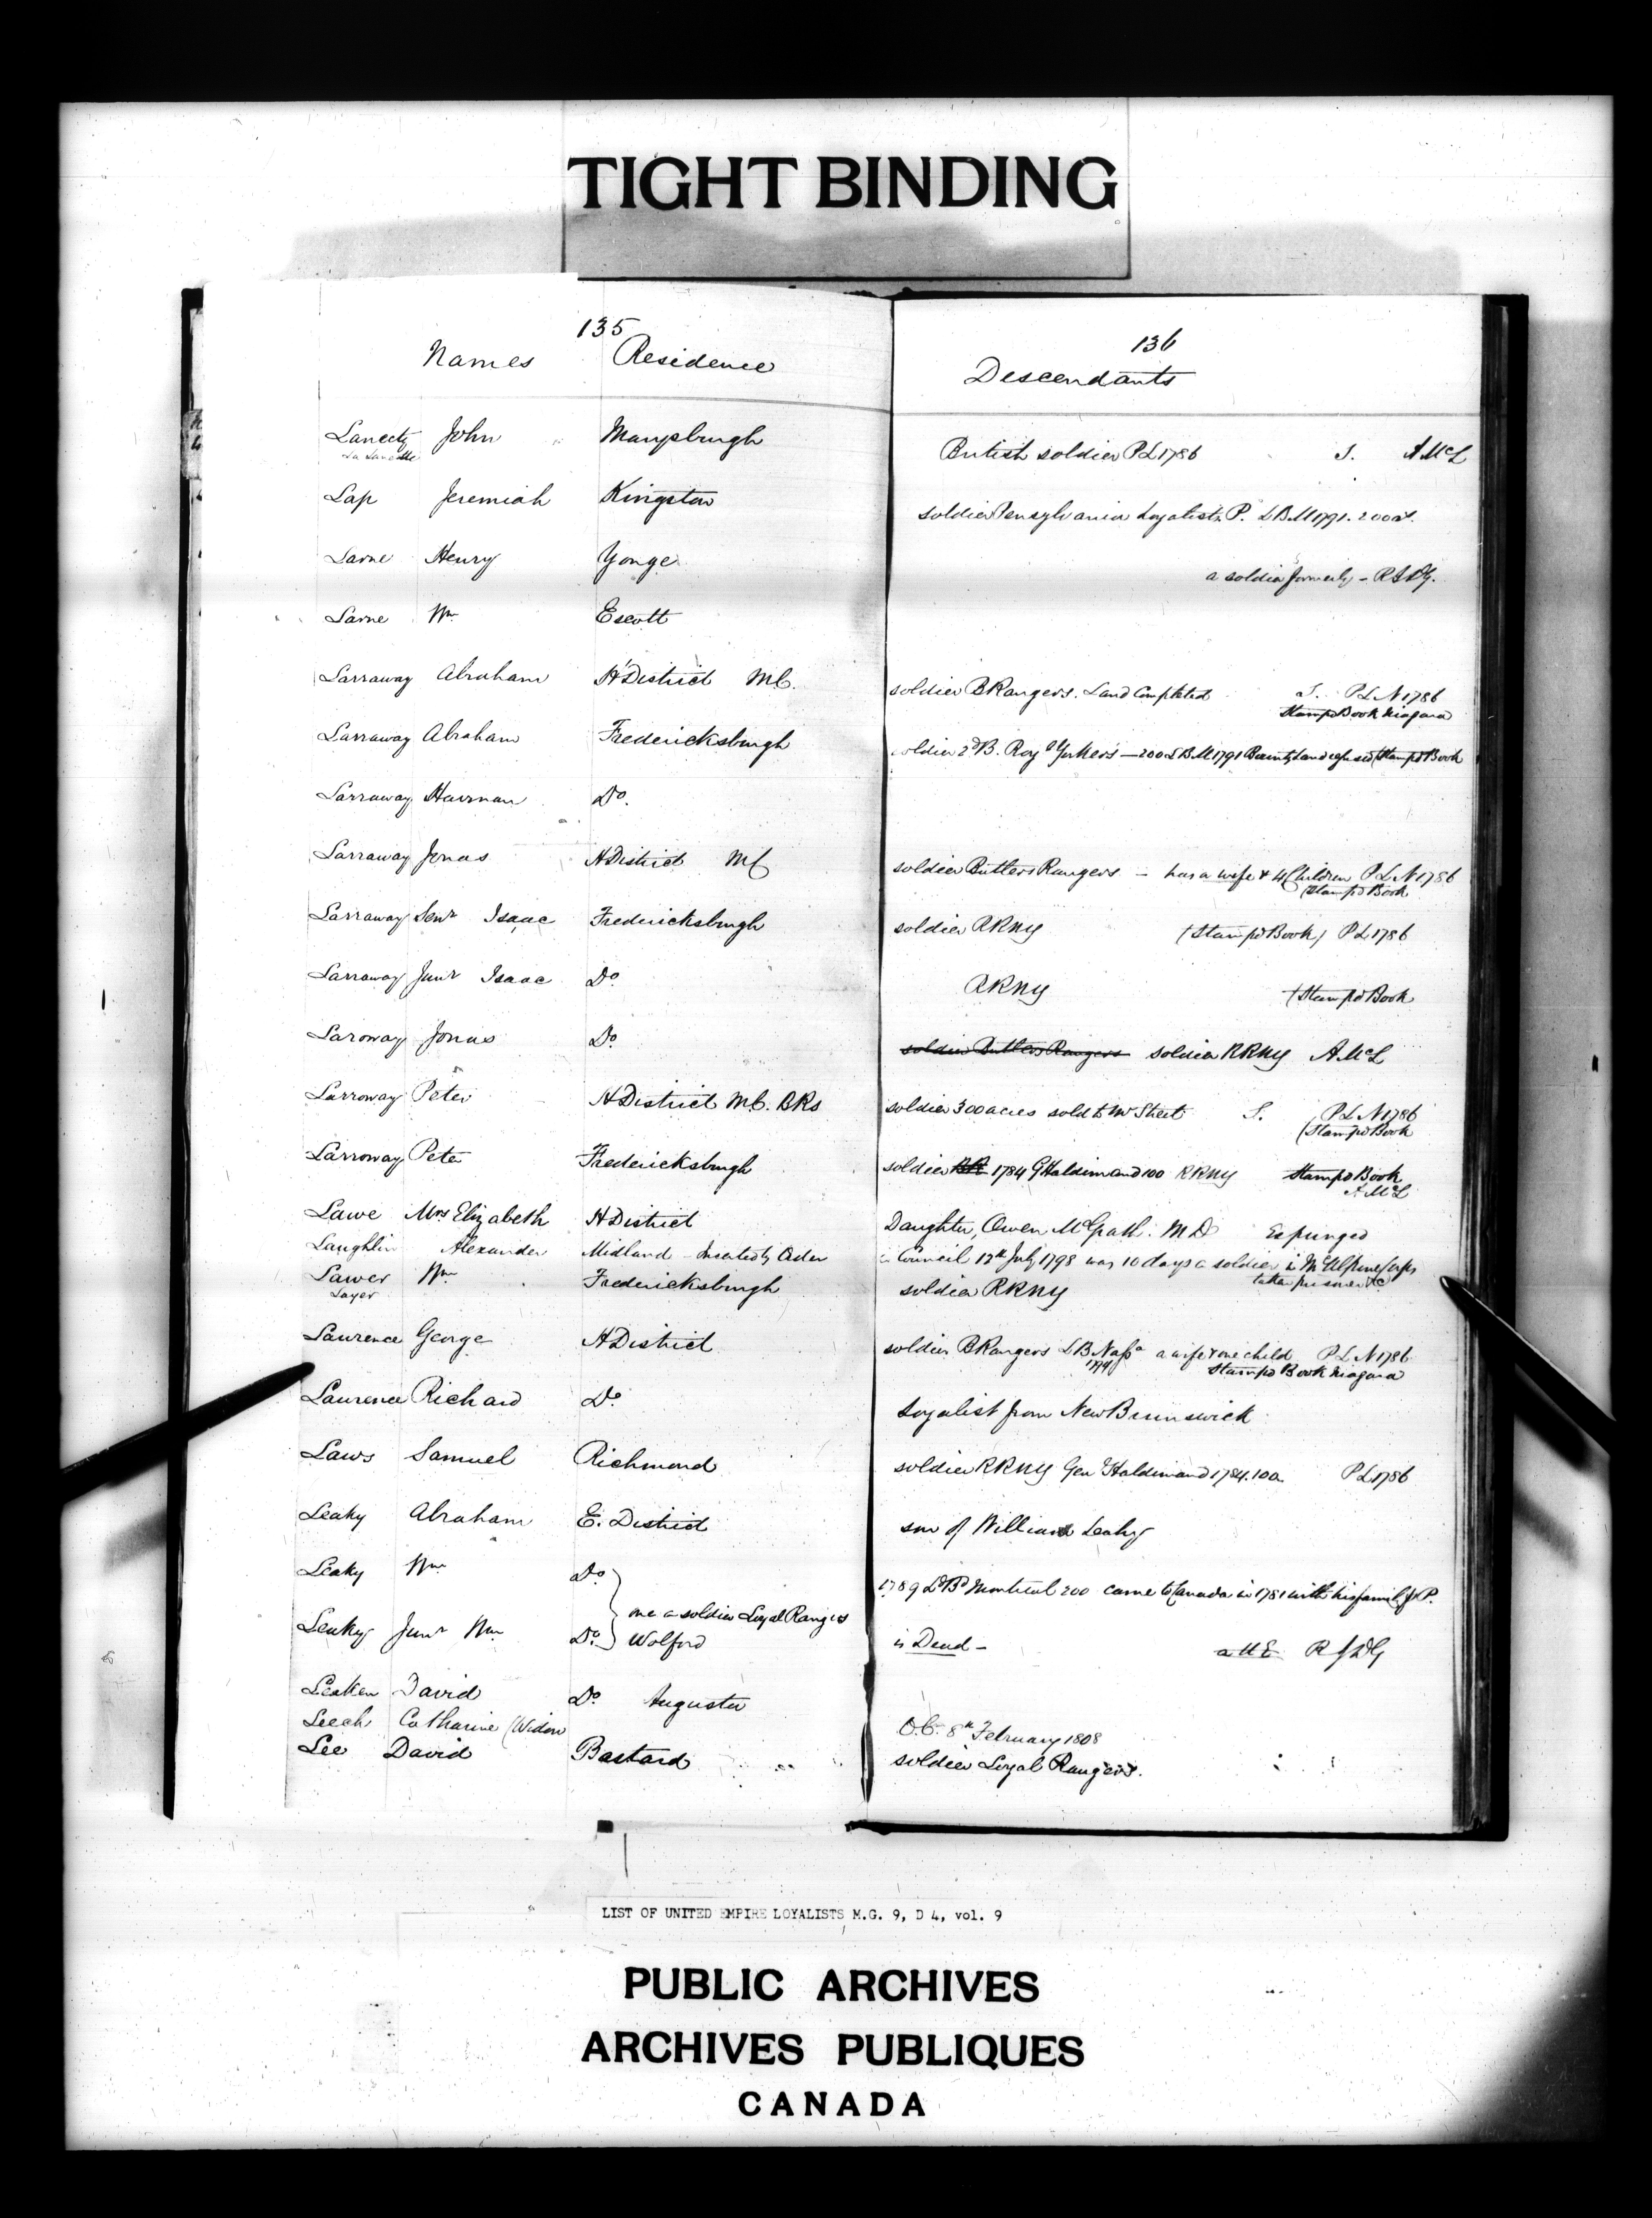 TIGHT BINDING
135
Names Residence
136
Descendants
Lanecty John Marysburgh British soldier P L 1786 S. A McL
La Lancette
Lap Jeremiah Kingston soldier Pensylvania Loyalists P. L B M 1791. 200 as.
Larne Henry Yonge a soldier formerly -
Larne Wm Escott
Larraway Abraham H District MC. soldier B Rangers. Land Completed S. P L N 1786
Stamp'd Book Niagara
Larraway Abraham Fredericksburgh soldier 2d B. Roy l Yorkers — 200 L B M 1791 Bounty Land refused (Stamp'd Book
Larraway Harman Do.
Larraway Jonas H District MC soldier Butlers Rangers - has a wife & 4 Children P L N 1786
(Stamp'd Book
Larraway Senr Isaac Fredericksburgh soldier RRNY (Stamp'd Book) P L 1786
Larraway Junr Isaac Do RRNY (Stamp'd Book
Laroway Jonas Do soldier Butlers Rangers soldier RRNY A McL
Larroway Peter H District MC. BRs soldier 300 acres sold to Mr Street S. P L N 1786
(Stamp'd Book
Larroway Peter Fredericksburgh soldier RR 1784 G Haldimand 100 RRNY Stamp'd Book
A McL
Lawe Mrs Elizabeth H District Daughter, Owen McGrath. M D Expunged
Laughlin Alexander Midland - Inserted by Order in Council 12th July 1798 was 10 days a soldier in McAlpins Corps
taken prisoner &c
Lawer Wm Fredericksburgh soldier RRNY
Layer
Laurence George H District soldier B Rangers L B Nassa a wife & one child P L N 1786
1794 Stamp'd Book Niagara
Laurence Richard Do Loyalist from New Brunswick
Laws Samuel Richmond soldier RRNY Gen Haldimand 1784. 10 a. P L 1786
Leaky Abraham E. District son of William Leaky
Leaky Wm Do 1789 L Bd Montreal 200 came to Canada in 1781 with his family P.
one a soldier Loyal Rangers
Leaky Junr Wm Do. Wolford is Dead - a U E
Leaken David Do Augusta
Leech Catharine (Widow O.C. 8th February 1808
Lee David Bastard soldier Loyal Rangers.
LIST OF UNITED EMPIRE LOYALISTS M.G. 9, D 4, vol. 9
PUBLIC ARCHIVES
ARCHIVES PUBLIQUES
CANADA